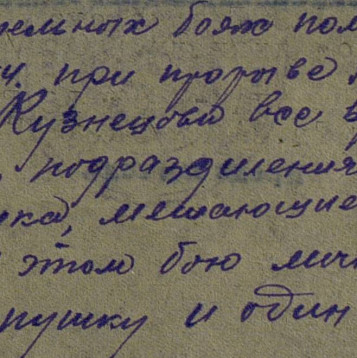 тельных боях пол
ч. при прорыве
Кузнецова все
, подразделения
ка, мешающие
этом бою лич
пушку и один